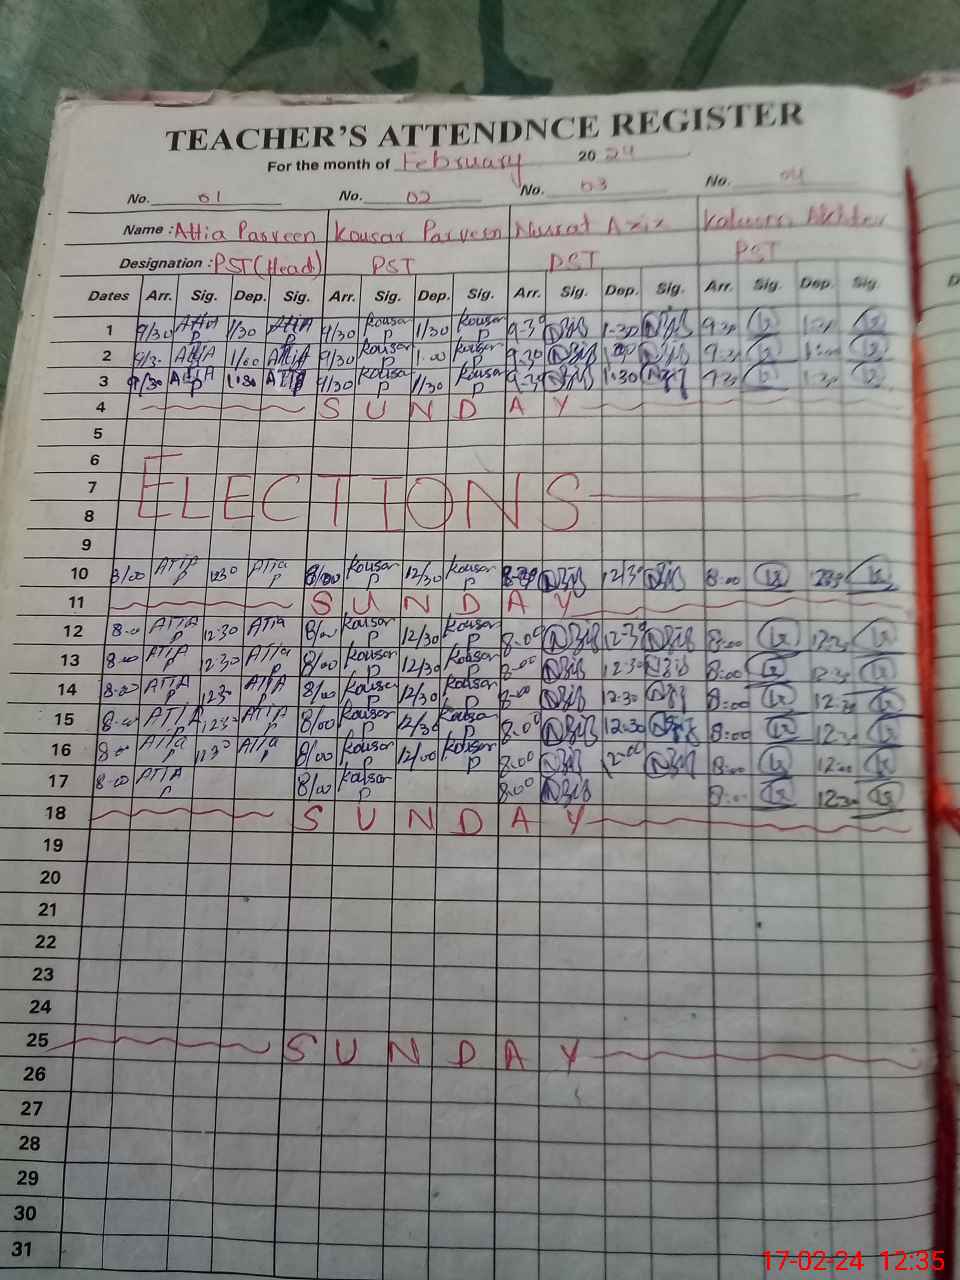 TEACHER'S ATTENDNCE REGISTER
For the month of February 2024
No. 01 No. 02 No. 03 No. 04
Name : Attia Parveen Kousar Parveen Nusrat Aziz Akhter
Designation : PST (Head) PST PST PST
Dates Arr. Sig. Dep. Sig. Arr. Sig. Dep. Sig. Arr. Sig. Dep. Sig. Arr. Sig. Dep. Sig.
1 9/30 Attia P 1/30 Attia P 9/30 Kousar P 1/30 Kousar P 9-30 1-30 9-30 1-30
2 9/30 Attia P 1/00 Attia 9/30 Kousar P 1.00 Kousar P 9-30 9-30 1-00
3 9/30 Attia P 1.30 Attia 9/30 Kousar P 1/30 Kousar P 9-30 1.30 9-30 1-30
4 SUNDAY
5
6
7 ELECTIONS
8
9
10 8/00 ATTIA P 1230 Attia P 8/00 Kousar P 12/30 Kousar P 8-00 12/30 8-00
11 SUNDAY
12 8-00 ATTIA P 12-30 Attia 8/00 Kousar P 12/30 Kousar P 8-00 12-30 8-00 12-30
13 8-00 ATTIA P 1230 Attia P 8/00 Kousar P 12/30 Kousar P 8-00 12-30 8-00 12-30
14 8-00 ATTIA P 1230 ATTIA P 8/00 Kousar P 12/30 Kousar P 8-00 12-30 8-00 12-30
15 8-00 ATTIA P 12-30 ATTIA P 8/00 Kousar P 12/30 Kousar P 8-00 12-30 8-00 12-30
16 8-00 Attia P Attia P 8/00 Kousar P 12/00 Kousar P 8-00 12-00 8-00 12-00
17 8-00 ATTIA P 8/00 Kousar P 8-00 8-00 12-30
18 SUNDAY
19
20
21
22
23
24
25 SUNDAY
26
27
28
29
30
31
17-02-24 12:35